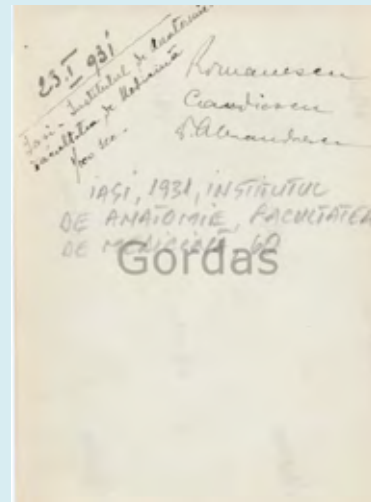 23.I 931
Iasi - Institutul de Anatomie
Facultatea de Medicină
1/100 sec.
Romanescu
Candiescu
Alexandrescu
IAȘI, 1931, INSTITUTUL
DE ANATOMIE, FACULTATEA
DE MEDICINĂ - 60
Gordas